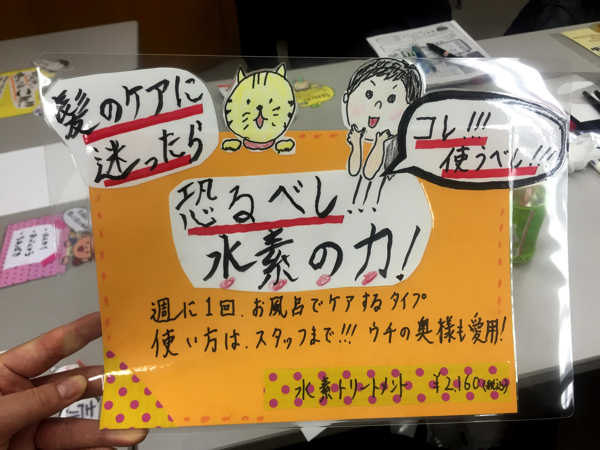 髪のケアに
迷ったら
コレ!!!
使うべし!!!
恐るべし!!!
水素の力!
週に1回、お風呂でケアするタイプ
使い方は、スタッフまで!!! ウチの奥様も愛用!
水素トリートメント ¥2,160(税込)